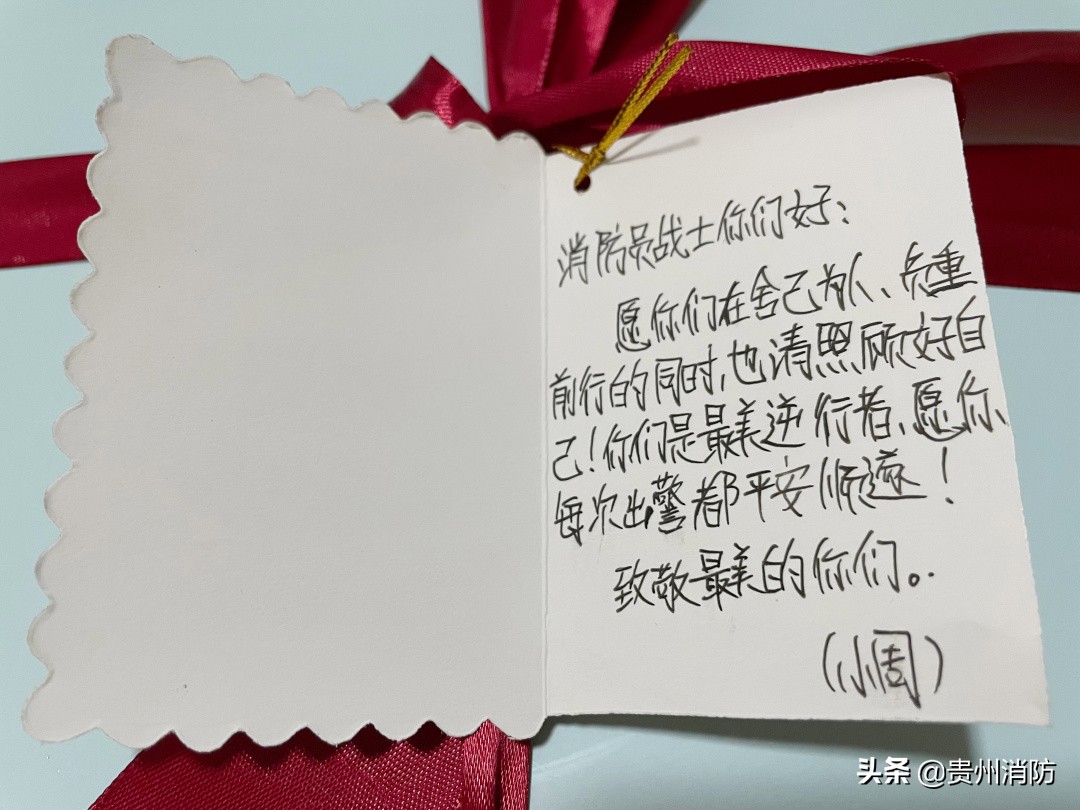 消防员战士你们好：
愿你们在舍己为人、负重
前行的同时，也请照顾好自
己！你们是最美逆行者、愿你、
每次出警都平安顺遂！
致敬最美的你们。
（小周）
头条 @贵州消防